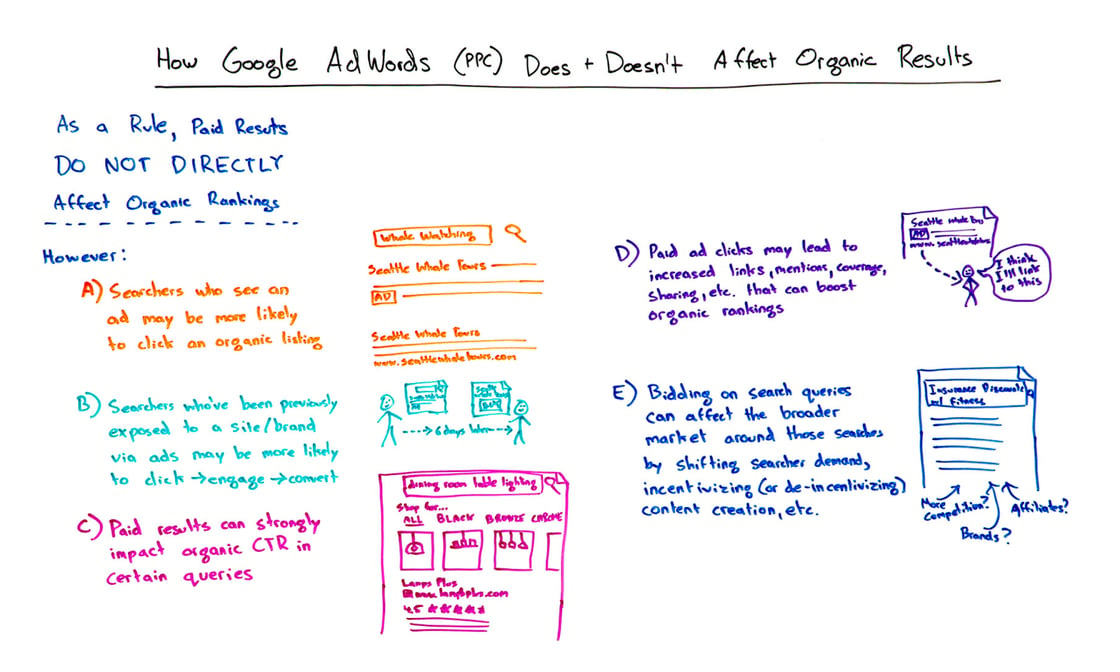 How Google AdWords (PPC) Does + Doesn't Affect Organic Results
As a Rule, Paid Resuts
DO NOT DIRECTLY
Affect Organic Rankings
However:
A) Searchers who see an
ad may be more likely
to click an organic listing
Whale Watching
Seattle Whale Tours
AD
Seattle Whale Tours
www.seattlewhaletours.com
B) Searchers who've been previously
exposed to a site/brand
via ads may be more likely
to click → engage → convert
6 days later
C) Paid results can strongly
impact organic CTR in
certain queries
dining room table lighting
Shop for...
ALL BLACK BRONZE CHROME
Lamps Plus
www.lampsplus.com
4.5 ★★★★★
D) Paid ad clicks may lead to
increased links, mentions, coverage,
sharing, etc. that can boost
organic rankings
Seattle Whale
AD
I think
I'll link
to this
E) Bidding on search queries
can affect the broader
market around those searches
by shifting searcher demand,
incentivizing (or de-incentivizing)
content creation, etc.
Insurance Discounts
Fitness
More
Competition?
Brands?
Affiliates?